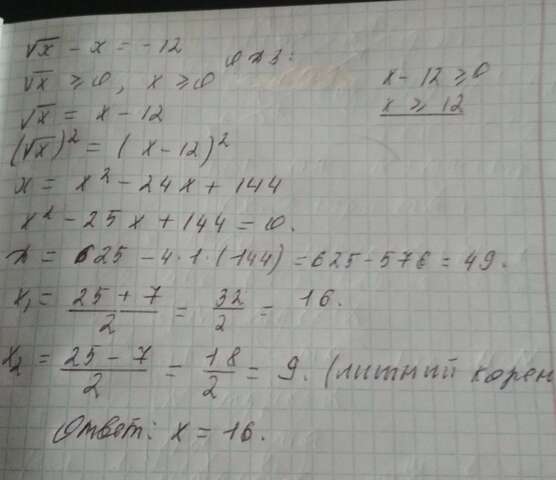 √x - x = -12
ОДЗ:
√x ≥ 0, x ≥ 0
x - 12 ≥ 0
√x = x - 12
x ≥ 12
(√x)² = (x - 12)²
x = x² - 24x + 144
x² - 25x + 144 = 0.
= 625 - 4·1·(144) = 625 - 576 = 49.
x₁ = (25 + 7)/2 = 32/2 = 16.
x₂ = (25 - 7)/2 = 18/2 = 9. (лишний корен
Ответ: x = 16.